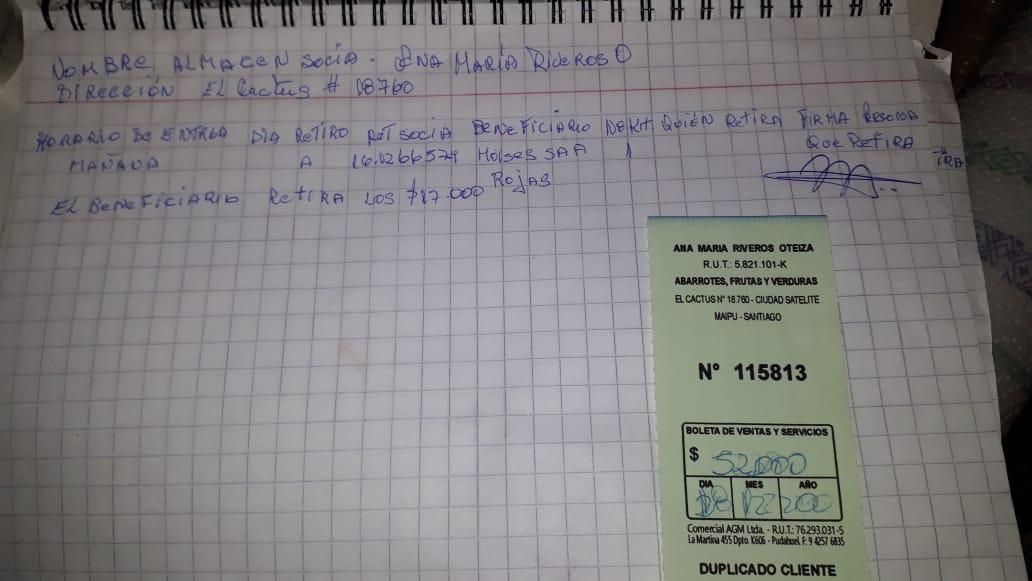 NOMBRE ALMACEN SOCIA - ANA MARÍA RIVEROS O
DIRECCIÓN EL Cactus # 18760
HORARIO DE ENTREGA DIA RETIRO RUT SOCIA BENEFICIARIO Nº KIT QUIÉN RETIRA FIRMA PERSONA
QUE RETIRA
MAÑANA A 16.0266574 MOISES SAA 1
ROJAS
EL BENEFICIARIO RETIRA LOS $17.000
ANA MARIA RIVEROS OTEIZA
R.U.T.: 5.821.101-K
ABARROTES, FRUTAS Y VERDURAS
EL CACTUS N° 18.760 - CIUDAD SATELITE
MAIPU - SANTIAGO
N° 115813
BOLETA DE VENTAS Y SERVICIOS
$ 52.000
DIA MES AÑO
Comercial AGM Ltda. - R.U.T.: 76.293.031-5
La Martina 455 Dpto. K606 - Pudahuel F: 9 4257 6835
DUPLICADO CLIENTE